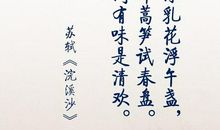 乳花浮午盏,
蒿笋试春盘。
有味是清欢。
苏轼《浣溪沙》